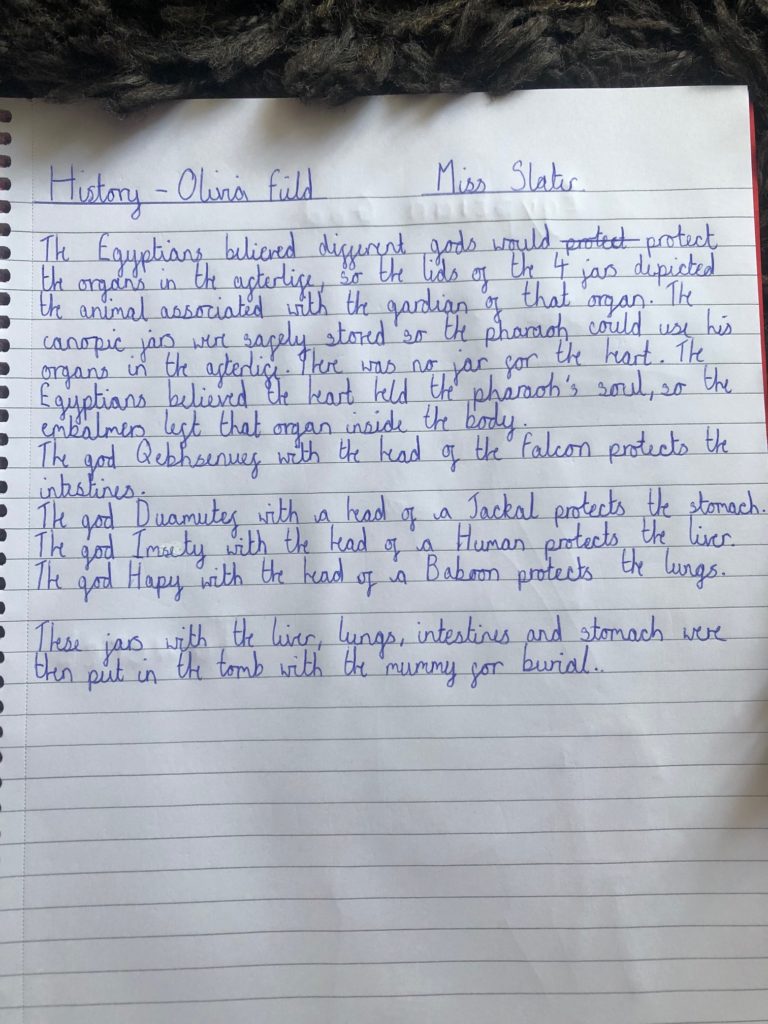 History - Olivia Field Miss Slater.
The Egyptians believed different gods would protect protect
the organs in the afterlife, so the lids of the 4 jars depicted
the animal associated with the gardian of that organ. The
canopic jars were safely stored so the pharaoh could use his
organs in the afterlife. There was no jar for the heart. The
Egyptians believed the heart held the pharaoh's soul, so the
embalmers left that organ inside the body.
The god Qebhsenuef with the head of the Falcon protects the
intestines.
The god Duamutef with a head of a Jackal protects the stomach.
The god Imsety with the head of a Human protects the liver.
The god Hapy with the head of a Baboon protects the lungs.
These jars with the liver, lungs, intestines and stomach were
then put in the tomb with the mummy for burial..